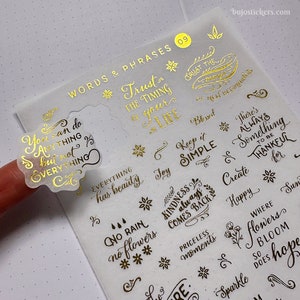 bujostickers.com
WORDS & PHRASES
09
Trust
THE TIMING
of your
LIFE
TRUST THE
You can do
ANYTHING
but not
EVERYTHING
Blessed
Keep it
SIMPLE
Joy
There's
ALWAYS
Something
TO BE
THANKFUL
FOR
EVERYTHING
has beauty
KINDNESS
ALWAYS
COMES BACK
Create
Happy
NO RAIN,
no flowers
PRICELESS
moments
WHERE
flowers
BLOOM
SO DOES
hope